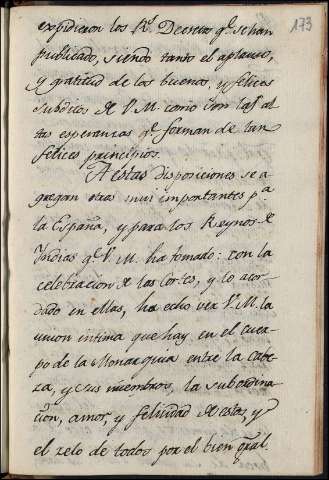 173
expidieron los Rs. Decretos qe. se han
publicado, siendo tanto el aplauso,
y gratitud de los buenos, y felices
subditos de V.M. como son las al
tas esperanzas qe. forman de tan
felices principios.
A estas disposiciones se a
gregan otras mui importantes pa.
la España, y para los Reynos de
Indias qe. V.M. ha tomado: con la
celebracion de las Cortes, y lo acor
dado en ellas, ha echo ver V.M. la
union intima que hay en el cuer
po de la Monarquia entre la cabe
za, y sus miembros, la subordina
cion, amor, y felicidad de estos, y
el zelo de todos por el bien gral.